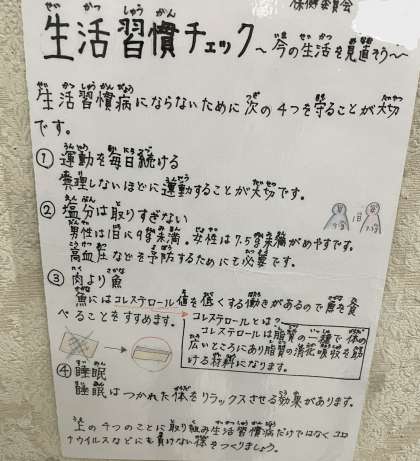 保健委員会
生活習慣チェック～今の生活を見直そう～
生活習慣病にならないために次の4つを守ることが大切
です。
① 運動を毎日続ける
無理しないほどに運動することが大切です。
② 塩分は取りすぎない
男性は1日に9g未満。女性は7.5g未満がめやすです。
高血圧などを予防するためにも必要です。
1日
③ 肉より魚
魚にはコレステロール値を低くする働きがあるので魚を食
べることをすすめます。
コレステロールとは?
コレステロールは脂質の一種で体の
広いところにあり脂質の消化吸収を助
ける材料になります。
④ 睡眠
睡眠はつかれた体をリラックスさせる効果があります。
上の4つのことに取り組み生活習慣病だけではなくコロ
ナウイルスなどにも負けない体をつくりましょう。